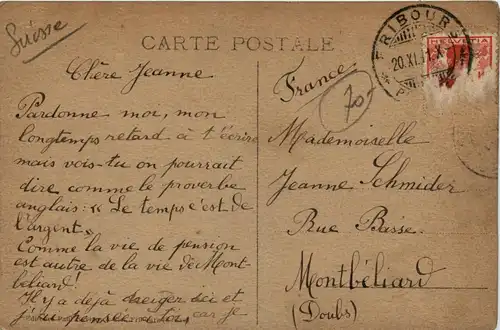 Suisse
CARTE POSTALE
FRIBOURG
20.XI.11.X
HELVETIA
Chère Jeanne
Pardonne moi, mon
longtemps retard à t'écrire
mais vois-tu on pourrait
dire comme le proverbe
anglais: « Le temps c'est de
l'argent »
Comme la vie de pension
est autre de la vie de Mont-
béliard.
Il y a déjà neiger ici et
j'ai pensée à toi car je
France
70-
Mademoiselle
Jeanne Schmider
Rue Basse.
Montbéliard
(Doubs)